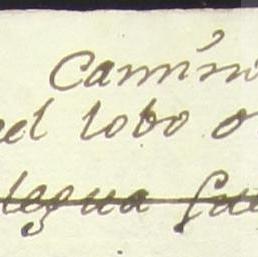 Camino
el lobo o
legua